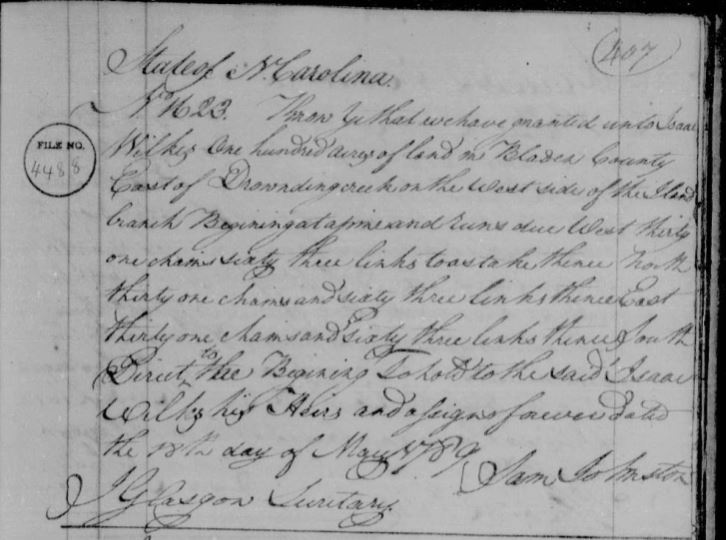 407
State of N. Carolina.
No 1623. Know Ye that we have granted unto Isaac
FILE NO.
4488
Wilkes One hundred acres of land in Bladen County
East of Drownding creek on the West side of the Iland
branch Begining at a pine and runs due West thirty
one chains sixty three links to a stake thence North
thirty one chains and sixty three links thence East
thirty one chains and Sixty three links thence South
Direct to the Begining To hold to the said Isaac
Wilks his Heirs and assigns forever dated
the 18th day of May 1789
Sam Johnston
J Glasgow Secritary.